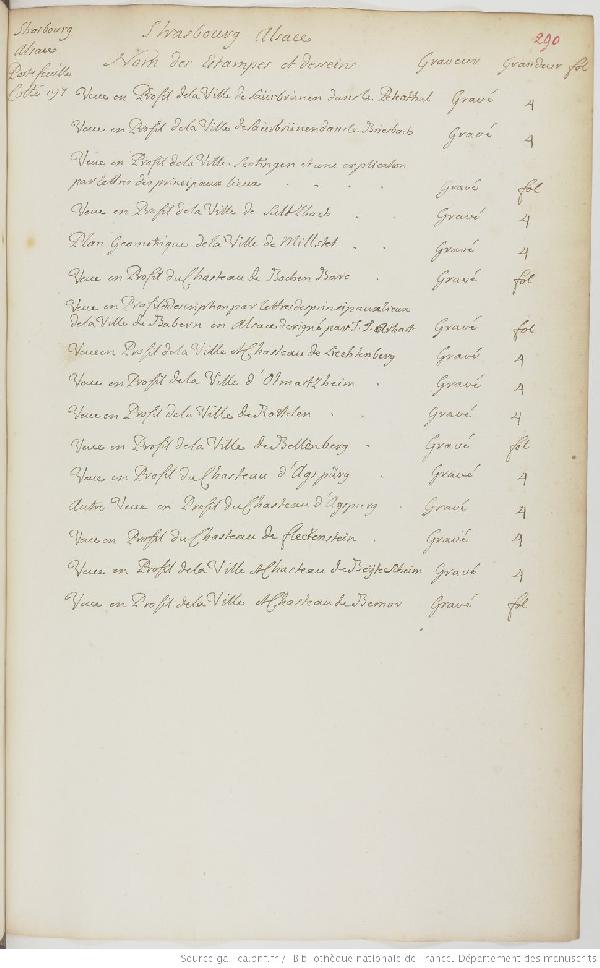 Strasbourg
Alsace
Portefeuille
Cotté 197
Strasbourg Alsace
290
Nom des Estampes et desseins Graveur Grandeur fol
Veue en Profil de la Ville de dans le Gravé 4
Veue en Profil de la Ville de dans le Gravé 4
Veue en Profil de la Ville et une explication
par lettres des principaux lieux Gravé fol
Veue en Profil de la Ville de Gravé 4
Plan Geometrique de la Ville de Millstet Gravé 4
Veue en Profil du Chasteau de Barr Gravé fol
Veue en Profil et description par lettres des principaux lieux
de la Ville de Zabern en Alsace designé par Gravé fol
Veue en Profil de la Ville et Chasteau de Liechtenberg Gravé 4
Veue en Profil de la Ville d'Olmartzheim Gravé 4
Veue en Profil de la Ville de Rottelen Gravé 4
Veue en Profil de la Ville de Bellenberg Gravé fol
Veue en Profil du Chasteau d'Agspürg Gravé 4
Autre Veue en Profil du Chasteau d'Agspurg Gravé 4
Veue en Profil du Chasteau de fleckenstein Gravé 4
Veue en Profil de la Ville et Chasteau de Gravé 4
Veue en Profil de la Ville et Chasteau de Gravé fol
Source gallica.bnf.fr / Bibliothèque nationale de France. Département des manuscrits